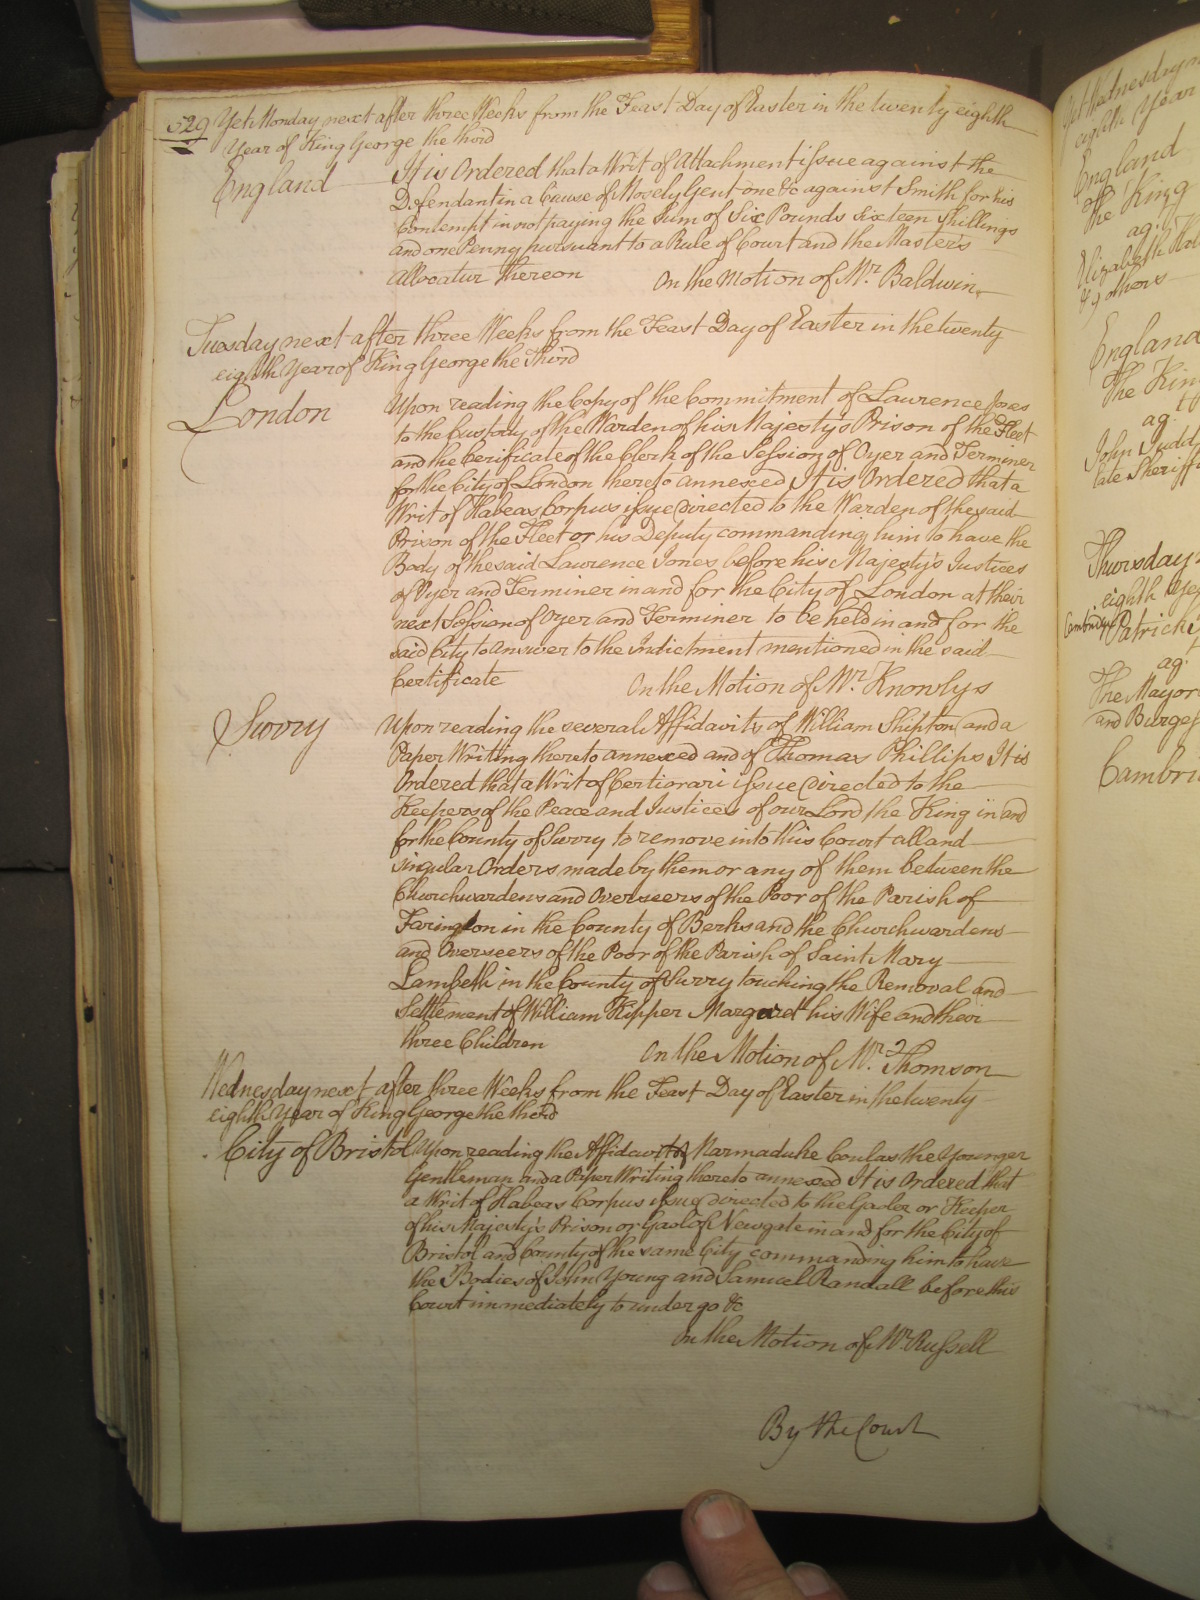 529 Yet Monday next after three Weeks from the Feast Day of Easter in the twenty eighth
Year of King George the third
England It is Ordered that a Writ of Attachment issue against the
Defendant in a Cause of Mosely Gent one &c against Smith for his
Contempt in not paying the Sum of Six Pounds sixteen Shillings
and one Penny pursuant to a Rule of Court and the Master's
Allocatur thereon On the Motion of Mr. Baldwin
Tuesday next after three Weeks from the Feast Day of Easter in the twenty
eighth Year of King George the Third
London Upon reading the Copy of the Commitment of Lawrence Jones
to the Custody of the Warden of his Majesty's Prison of the Fleet
and the Cerificate of the Clerk of the Session of Oyer and Terminer
for the City of London thereto annexed It is Ordered that a
Writ of Habeas Corpus issue directed to the Warden of the said
Prison of the Fleet or his Deputy commanding him to have the
Body of the said Lawrence Jones before his Majesty's Justices
of Oyer and Terminer in and for the City of London at their
next Session of Oyer and Terminer to be held in and for the
said City to answer to the Indictment mentioned in the said
Certificate On the Motion of Mr. Knowlys
Surry Upon reading the several Affidavits of William Shipton and a
Paper Writing thereto annexed and of Thomas Phillips It is
Ordered that a Writ of Certiorari issue directed to the
Keepers of the Peace and Justices of our Lord the King in and
for the County of Surry to remove into this Court all and
singular Orders made by them or any of them between the
Churchwardens and Overseers of the Poor of the Parish of
Faringdon in the County of Berks and the Churchwardens
and Overseers of the Poor of the Parish of Saint Mary
Lambeth in the County of Surry touching the Removal and
Settlement of William Kipper Margaret his Wife and their
three Children On the Motion of Mr. Thomson
Wednesday next after three Weeks from the Feast Day of Easter in the twenty
eighth Year of King George the third
City of Bristol Upon reading the Affidavit of Marmaduke Coulas the Younger
Gentleman and a Paper Writing thereto annexed It is Ordered that
a Writ of Habeas Corpus issue directed to the Gaoler or Keeper
of his Majesty's Prison or Gaol of Newgate in and for the City of
Bristol and County of the same City commanding him to have
the Bodies of John Young and Samuel Randall before this
Court immediately to undergo &c
On the Motion of Mr. Russell
By the Court
Yet Wednesday
eighth Year
England
The King
ag.
Elizabeth
& 9 others
England
The King
ag.
John Judd
late Sheriff
Thursday
eighth
Cambridge Patrick
ag.
The Mayor
and Burgess
Cambri